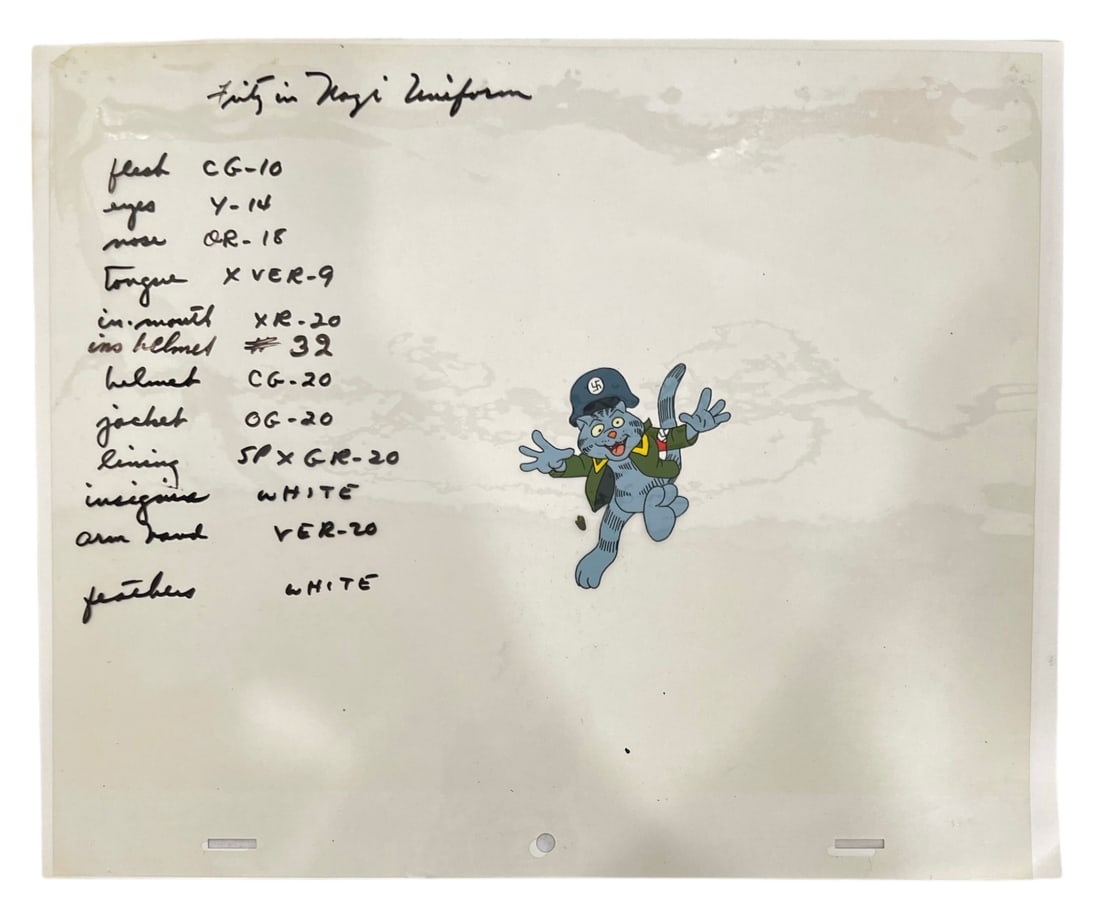 Fritz in Nazi Uniform
flesh CG-10
eyes Y-14
nose OR-18
Tongue X VER-9
in.mouth XR-20
ins helmet # 32
helmet CG-20
jacket OG-20
lining SP X GR-20
insignias WHITE
arm band VER-20
feathers WHITE